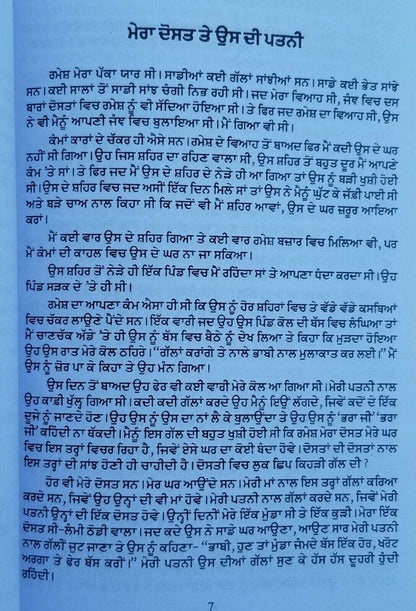 ਮੇਰਾ ਦੋਸਤ ਤੇ ਉਸ ਦੀ ਪਤਨੀ
ਰਮੇਸ਼ ਮੇਰਾ ਪੱਕਾ ਯਾਰ ਸੀ। ਸਾਡੀਆਂ ਕਈ ਗੱਲਾਂ ਸਾਂਝੀਆਂ ਸਨ। ਸਾਡੇ ਕਈ ਭੇਤ ਸਾਂਝੇ
ਸਨ। ਕਈ ਸਾਲਾਂ ਤੋਂ ਸਾਡੀ ਸਾਂਝ ਚੰਗੀ ਨਿਭ ਰਹੀ ਸੀ। ਜਦ ਮੇਰਾ ਵਿਆਹ ਸੀ, ਜੰਞ ਵਿਚ ਦਸ
ਬਾਰਾਂ ਦੋਸਤਾਂ ਵਿਚ ਰਮੇਸ਼ ਨੂੰ ਵੀ ਸੱਦਿਆ ਹੋਇਆ ਸੀ। ਤੇ ਫਿਰ ਜਦ ਰਮੇਸ਼ ਦਾ ਵਿਆਹ ਸੀ, ਉਸ
ਨੇ ਵੀ ਮੈਨੂੰ ਆਪਣੀ ਜੰਞ ਵਿਚ ਬੁਲਾਇਆ ਸੀ। ਮੈਂ ਗਿਆ ਵੀ ਸੀ।
ਕੰਮਾਂ ਕਾਰਾਂ ਦੇ ਚੱਕਰ ਹੀ ਐਸੇ ਸਨ। ਰਮੇਸ਼ ਦੇ ਵਿਆਹ ਤੋਂ ਬਾਅਦ ਫਿਰ ਮੈਂ ਕਦੀ ਉਸ ਦੇ ਘਰ
ਨਹੀਂ ਸੀ ਗਿਆ। ਉਹ ਜਿਸ ਸ਼ਹਿਰ ਦਾ ਰਹਿਣ ਵਾਲਾ ਸੀ, ਉਸ ਸ਼ਹਿਰ ਤੋਂ ਬਹੁਤ ਦੂਰ ਮੈਂ ਆਪਣੇ
ਕੰਮ 'ਤੇ ਸਾਂ। ਤੇ ਫਿਰ ਜਦ ਮੈਂ ਉਸ ਦੇ ਸ਼ਹਿਰ ਦੇ ਨੇੜੇ ਹੀ ਆ ਗਿਆ ਤਾਂ ਉਸ ਨੂੰ ਬੜੀ ਖੁਸ਼ੀ ਹੋਈ
ਸੀ। ਉਸ ਦੇ ਸ਼ਹਿਰ ਵਿਚ ਜਦ ਅਸੀਂ ਇੱਕ ਦਿਨ ਮਿਲੇ ਸਾਂ ਤਾਂ ਉਸ ਨੇ ਮੈਨੂੰ ਘੁੱਟ ਕੇ ਜੱਫੀ ਪਾਈ ਸੀ
ਅਤੇ ਬੜੇ ਚਾਅ ਨਾਲ ਕਿਹਾ ਸੀ ਕਿ ਜਦੋਂ ਵੀ ਮੈਂ ਸ਼ਹਿਰ ਆਵਾਂ, ਉਸ ਦੇ ਘਰ ਜ਼ਰੂਰ ਆਇਆ
ਕਰਾਂ।
ਮੈਂ ਕਈ ਵਾਰ ਉਸ ਦੇ ਸ਼ਹਿਰ ਗਿਆ ਤੇ ਕਈ ਵਾਰ ਰਮੇਸ਼ ਬਜ਼ਾਰ ਵਿਚ ਮਿਲਿਆ ਵੀ, ਪਰ
ਮੈਂ ਕੰਮਾਂ ਦੀ ਕਾਹਲ ਵਿਚ ਉਸ ਦੇ ਘਰ ਨਾ ਜਾ ਸਕਿਆ।
ਉਸ ਸ਼ਹਿਰ ਤੋਂ ਨੇੜੇ ਹੀ ਇੱਕ ਪਿੰਡ ਵਿਚ ਮੈਂ ਰਹਿੰਦਾ ਸਾਂ ਤੇ ਆਪਣਾ ਧੰਦਾ ਕਰਦਾ ਸੀ। ਉਹ
ਪਿੰਡ ਸੜਕ ਦੇ 'ਤੇ ਹੀ ਸੀ।
ਰਮੇਸ਼ ਦਾ ਆਪਣਾ ਕੰਮ ਐਸਾ ਹੀ ਸੀ ਕਿ ਉਸ ਨੂੰ ਹੋਰ ਸ਼ਹਿਰਾਂ ਵਿਚ ਤੇ ਵੱਡੇ ਵੱਡੇ ਕਸਬਿਆਂ
ਵਿਚ ਚੱਕਰ ਲਾਉਣੇ ਪੈਂਦੇ ਸਨ। ਇੱਕ ਵਾਰੀ ਜਦ ਉਹ ਉਸ ਪਿੰਡ ਕੋਲ ਦੀ ਬੱਸ ਵਿਚ ਲੰਘਿਆ ਤਾਂ
ਮੈਂ ਚਾਣਚੱਕ ਅੱਡੇ 'ਤੇ ਹੀ ਉਸ ਨੂੰ ਬੱਸ ਵਿਚ ਬੈਠੇ ਨੂੰ ਦੇਖ ਲਿਆ ਤੇ ਕਿਹਾ ਕਿ ਮੁੜਦਾ ਹੋਇਆ
ਉਹ ਉਸ ਰਾਤ ਮੇਰੇ ਕੋਲ ਠਹਿਰੇ। "ਗੱਲਾਂ ਕਰਾਂਗੇ ਤੇ ਨਾਲੇ ਭਾਬੀ ਨਾਲ ਮੁਲਾਕਾਤ ਕਰ ਲਈ।" ਮੈਂ
ਉਸ ਨੂੰ ਜ਼ੋਰ ਪਾ ਕੇ ਕਿਹਾ ਤੇ ਉਹ ਮੰਨ ਗਿਆ।
ਉਸ ਦਿਨ ਤੋਂ ਬਾਅਦ ਉਹ ਫੇਰ ਵੀ ਕਈ ਵਾਰੀ ਮੇਰੇ ਕੋਲ ਆ ਗਿਆ ਸੀ। ਮੇਰੀ ਪਤਨੀ ਨਾਲ
ਉਹ ਕਾਫ਼ੀ ਖੁੱਲ੍ਹ ਗਿਆ ਸੀ। ਕਦੀ ਕਦੀ ਗੱਲਾਂ ਕਰਦੇ ਉਹ ਮੈਨੂੰ ਇਉਂ ਲੱਗਦੇ, ਜਿਵੇਂ ਕਦੋਂ ਦੇ ਇੱਕ
ਦੂਜੇ ਨੂੰ ਜਾਣਦੇ ਹੋਣ। ਉਹ ਉਸ ਨੂੰ ਉਸ ਦਾ ਨਾਂ ਲੈ ਕੇ ਬੁਲਾਉਂਦਾ ਤੇ ਉਹ ਉਸ ਨੂੰ 'ਭਰਾ ਜੀ' 'ਭਰਾ
ਜੀ' ਕਹਿੰਦੀ ਨਾ ਥੱਕਦੀ। ਮੈਨੂੰ ਇਸ ਗੱਲ ਦੀ ਬਹੁਤ ਖੁਸ਼ੀ ਹੋਈ ਸੀ ਕਿ ਰਮੇਸ਼ ਮੇਰਾ ਦੋਸਤ ਮੇਰੇ ਘਰ
ਵਿਚ ਇਸ ਤਰ੍ਹਾਂ ਵਿਚਰ ਰਿਹਾ ਹੈ, ਜਿਵੇਂ ਏਸੇ ਘਰ ਦਾ ਕੋਈ ਬੰਦਾ ਹੋਵੇ। ਦੋਸਤਾਂ ਦੀ ਦੋਸਤਾਂ ਨਾਲ
ਇਸ ਤਰ੍ਹਾਂ ਦੀ ਸਾਂਝ ਹੋਣੀ ਹੀ ਚਾਹੀਦੀ ਹੈ। ਦੋਸਤੀ ਵਿਚ ਲੁਕ ਛਿਪ ਕਿਹੜੀ ਗੱਲ ਦੀ ?
ਹੋਰ ਵੀ ਮੇਰੇ ਦੋਸਤ ਸਨ। ਮੇਰੇ ਘਰ ਆਉਂਦੇ ਸਨ। ਮੇਰੀ ਮਾਂ ਨਾਲ ਇਸ ਤਰ੍ਹਾਂ ਗੱਲਾਂ ਕਰਿਆ
ਕਰਦੇ ਸਨ, ਜਿਵੇਂ ਉਹ ਉਨ੍ਹਾਂ ਦੀ ਵੀ ਮਾਂ ਹੋਵੇ। ਮੇਰੀ ਪਤਨੀ ਨਾਲ ਗੱਲਾਂ ਕਰਦੇ ਸਨ, ਜਿਵੇਂ ਮੇਰੀ
ਪਤਨੀ ਉਨ੍ਹਾਂ ਦੀ ਇੱਕ ਦੋਸਤ ਹੋਵੇ। ਉਨ੍ਹੀਂ ਦਿਨੀਂ ਮੇਰੇ ਇੱਕ ਮੁੰਡਾ ਸੀ ਤੇ ਇੱਕ ਕੁੜੀ। ਮੇਰਾ ਇੱਕ
ਦੋਸਤ ਸੀ-ਲੰਮੀ ਠੋਡੀ ਵਾਲਾ। ਜਦ ਕਦੇ ਉਸ ਨੇ ਸਾਡੇ ਘਰ ਆਉਣਾ, ਆਉਣ ਸਾਰ ਮੇਰੀ ਪਤਨੀ
ਨਾਲ ਗੱਲੀਂ ਜੁਟ ਜਾਣਾ ਤੇ ਉਸ ਨੂੰ ਕਹਿਣਾ- "ਭਾਬੀ, ਹੁਣ ਤਾਂ ਮੁੰਡਾ ਜੰਮਦੇ ਬੱਸ ਇੱਕ ਹੋਰ, ਖਰੋਟ
ਅਰਗਾ ਤੇ ਫੇਰ ਬੱਸ ਕਰੀਂ।" ਮੇਰੀ ਪਤਨੀ ਉਸ ਦੀਆਂ ਗੱਲਾਂ ਸੁਣ ਕੇ ਹੱਸ ਹੱਸ ਦੂਹਰੀ ਹੁੰਦੀ
ਰਹਿੰਦੀ।
7